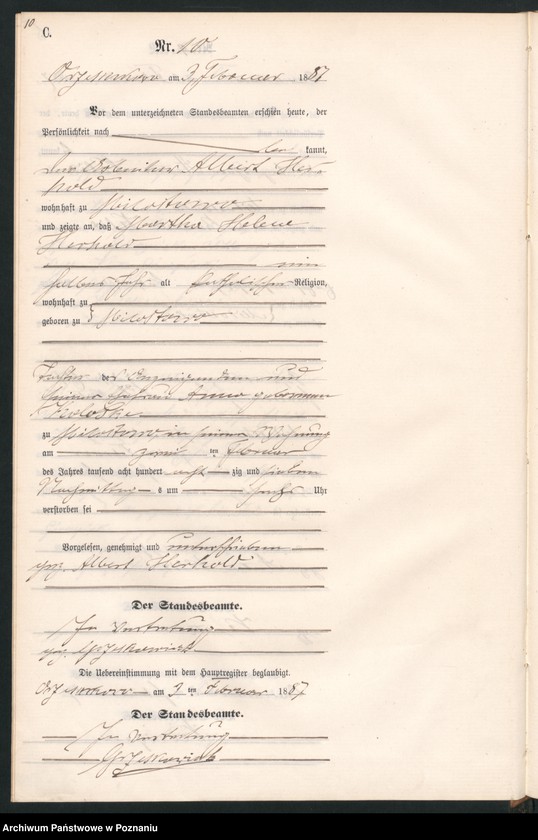 10
C.
Nr. 10.
am 3. Februar 1887
Vor dem unterzeichneten Standesbeamten erschien heute, der
Persönlichkeit nach
kannt,
Albert Her-
kold
wohnhaft zu Milostowo
und zeigte an, daß Martha Helene
Herkold
ein
halbes Jahr alt katholischer Religion,
wohnhaft zu
geboren zu Milostowo
Tochter des Anzeigenden und
seiner Ehefrau Anna geborenen
zu Milostowo in seiner Wohnung
am zwei ten Februar
des Jahres tausend acht hundert acht zig und sieben
Nachmittags um sechs Uhr
verstorben sei
Vorgelesen, genehmigt und unterschrieben
gez. Albert Herkold
Der Standesbeamte.
In Vertretung
gez.
Die Uebereinstimmung mit dem Hauptregister beglaubigt.
am 3 ten Februar 1887
Der Standesbeamte.
In Vertretung
Archiwum Państwowe w Poznaniu